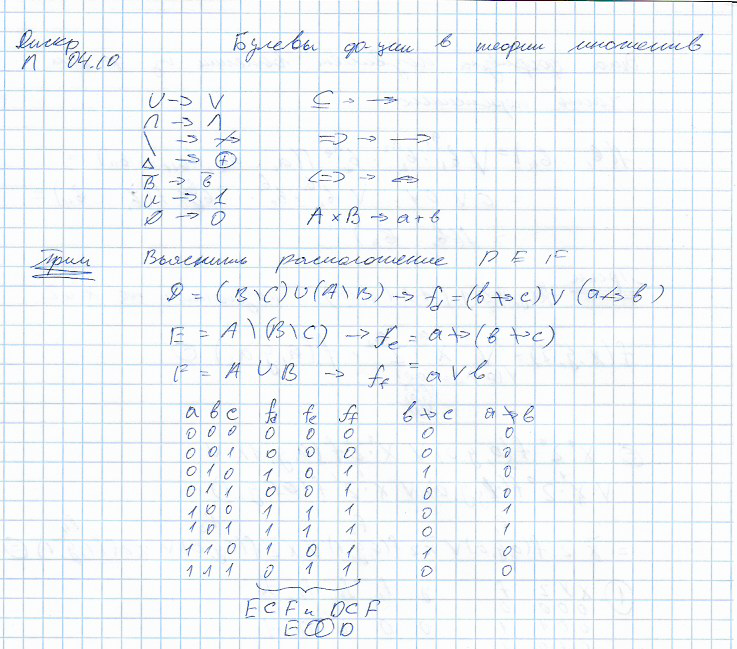 Дискр Булевы ф-ции в теории множеств
Л 04.10
∪ → ∨ ⊆ → →
∩ → ∧
\ → ↛ => → →
Δ → ⊕
B̅ → b̅ <=> → ↔
U → 1
∅ → 0 A × B → a + b
Прим Выяснить расположение D E F
D = (B\C) ∪ (A\B) → f_d = (b ↛ c) ∨ (a ↛ b)
E = A \ (B\C) → f_e = a ↛ (b ↛ c)
F = A ∪ B → f_f = a ∨ b
a b c f_d f_e f_f b ↛ c a ↛ b
0 0 0 0 0 0 0 0
0 0 1 0 0 0 0 0
0 1 0 1 0 1 1 0
0 1 1 0 0 1 0 0
1 0 0 1 1 1 0 1
1 0 1 1 1 1 0 1
1 1 0 1 0 1 1 0
1 1 1 0 1 1 0 0
E ⊂ F и D ⊂ F
E D